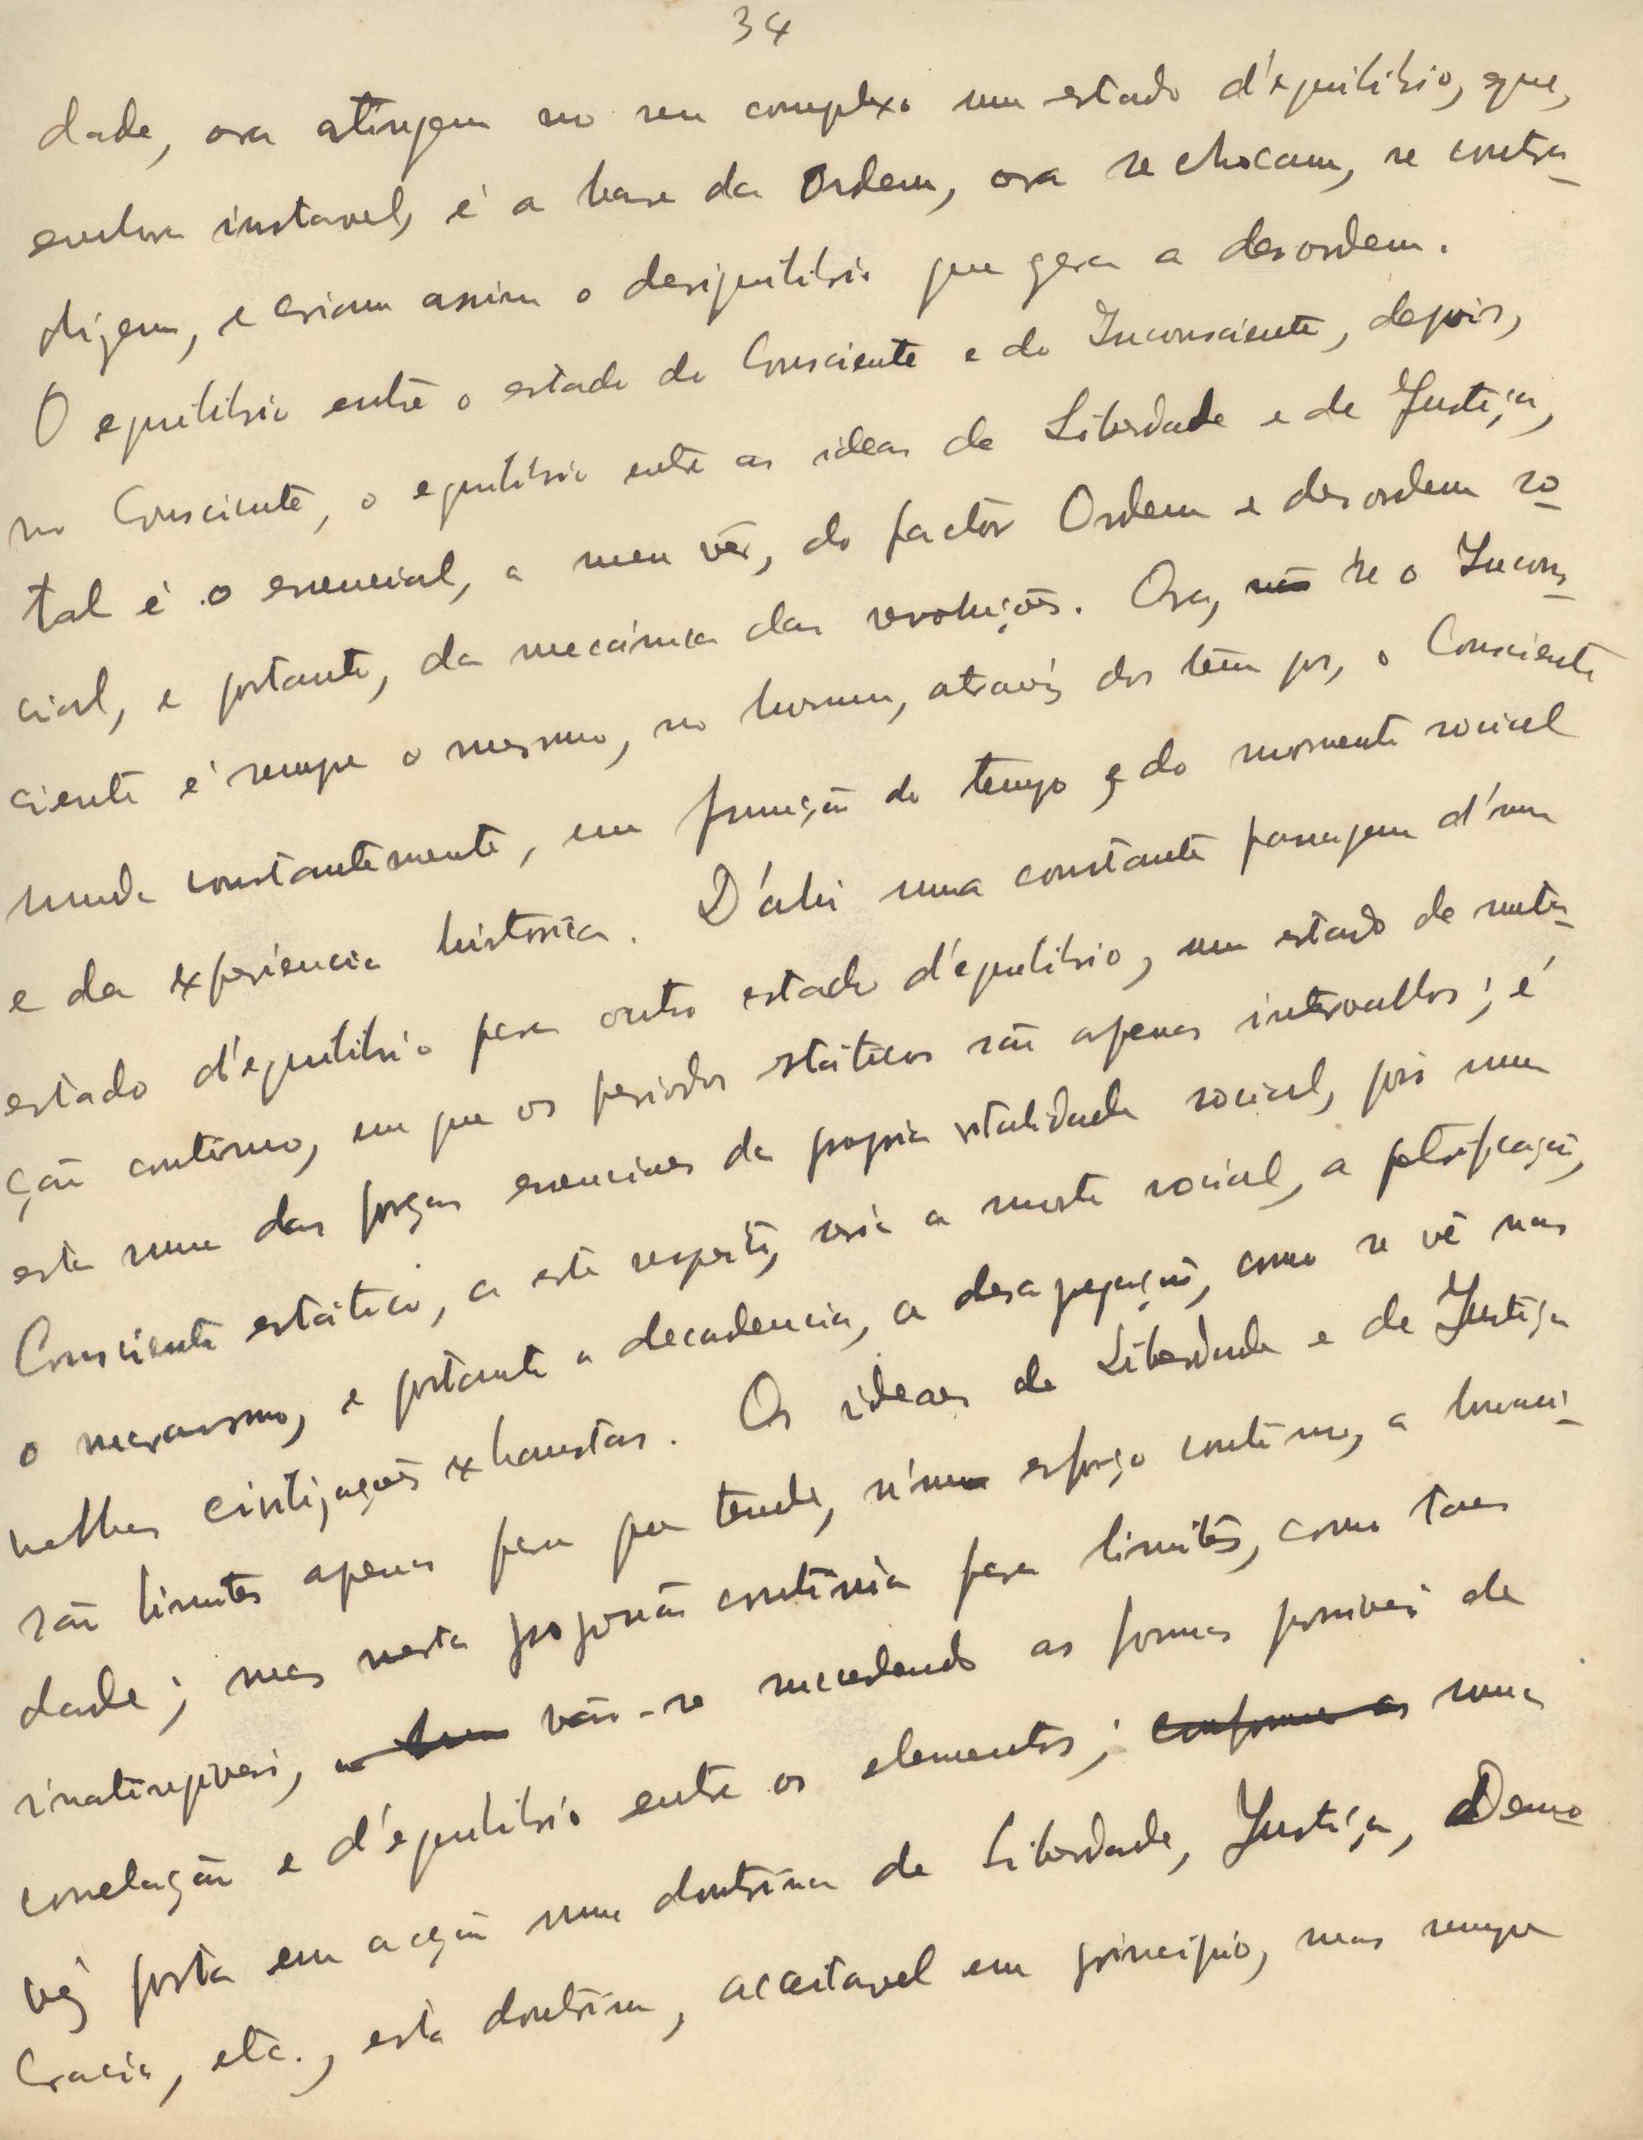 34
dade, ora atingem no seu complexo um estado d'equilibrio, que,
embora instavel, é a base da Ordem, ora se chocam, se contra-
dizem, e criam assim o desiquilibrio que gera a desordem.
O equilibrio entre o estado do Consciente e do Inconsciente, depois,
no Consciente, o equilibrio entre as ideas de Liberdade e de Justiça,
tal é o essencial, a meu vêr, do factor Ordem e desordem so-
cial, e portanto, da mecánica das revoluções. Ora, não se o Incons-
ciente é sempre o mesmo, no homem, através dos tempos, o Consciente
muda constantemente, em função do tempo e do momento social
e da experiencia historica. D'ahi uma constante passagem d'um
estado d'equilibrio para outro estado d'equilibrio, um estado de muta-
ção contínuo, em que os periodos státicos são apenas intervallos; é
esta uma das forças essenciaes da propria vitalidade social, pois um
Consciente estático, a este respeito, seria a morte social, a petrificação,
o marasmo, e portanto a decadencia, a desagregação, como se vê nas
velhas civilizações exhaustas. Os ideaes de Liberdade e de Justiça
são limites apenas para que tende, n'um esforço contínuo, a humani-
dade; mas nesta progressão contínua para limites, como taes
inatingiveis, vão-se sucedendo as formas possiveis de
correlação e d'equilibrio entre os elementos; conforme as uma
vez posta em acção uma doutrina de Liberdade, Justiça, Demo-
cracia, etc., esta doutrina, aceitavel em principio, mas sempre